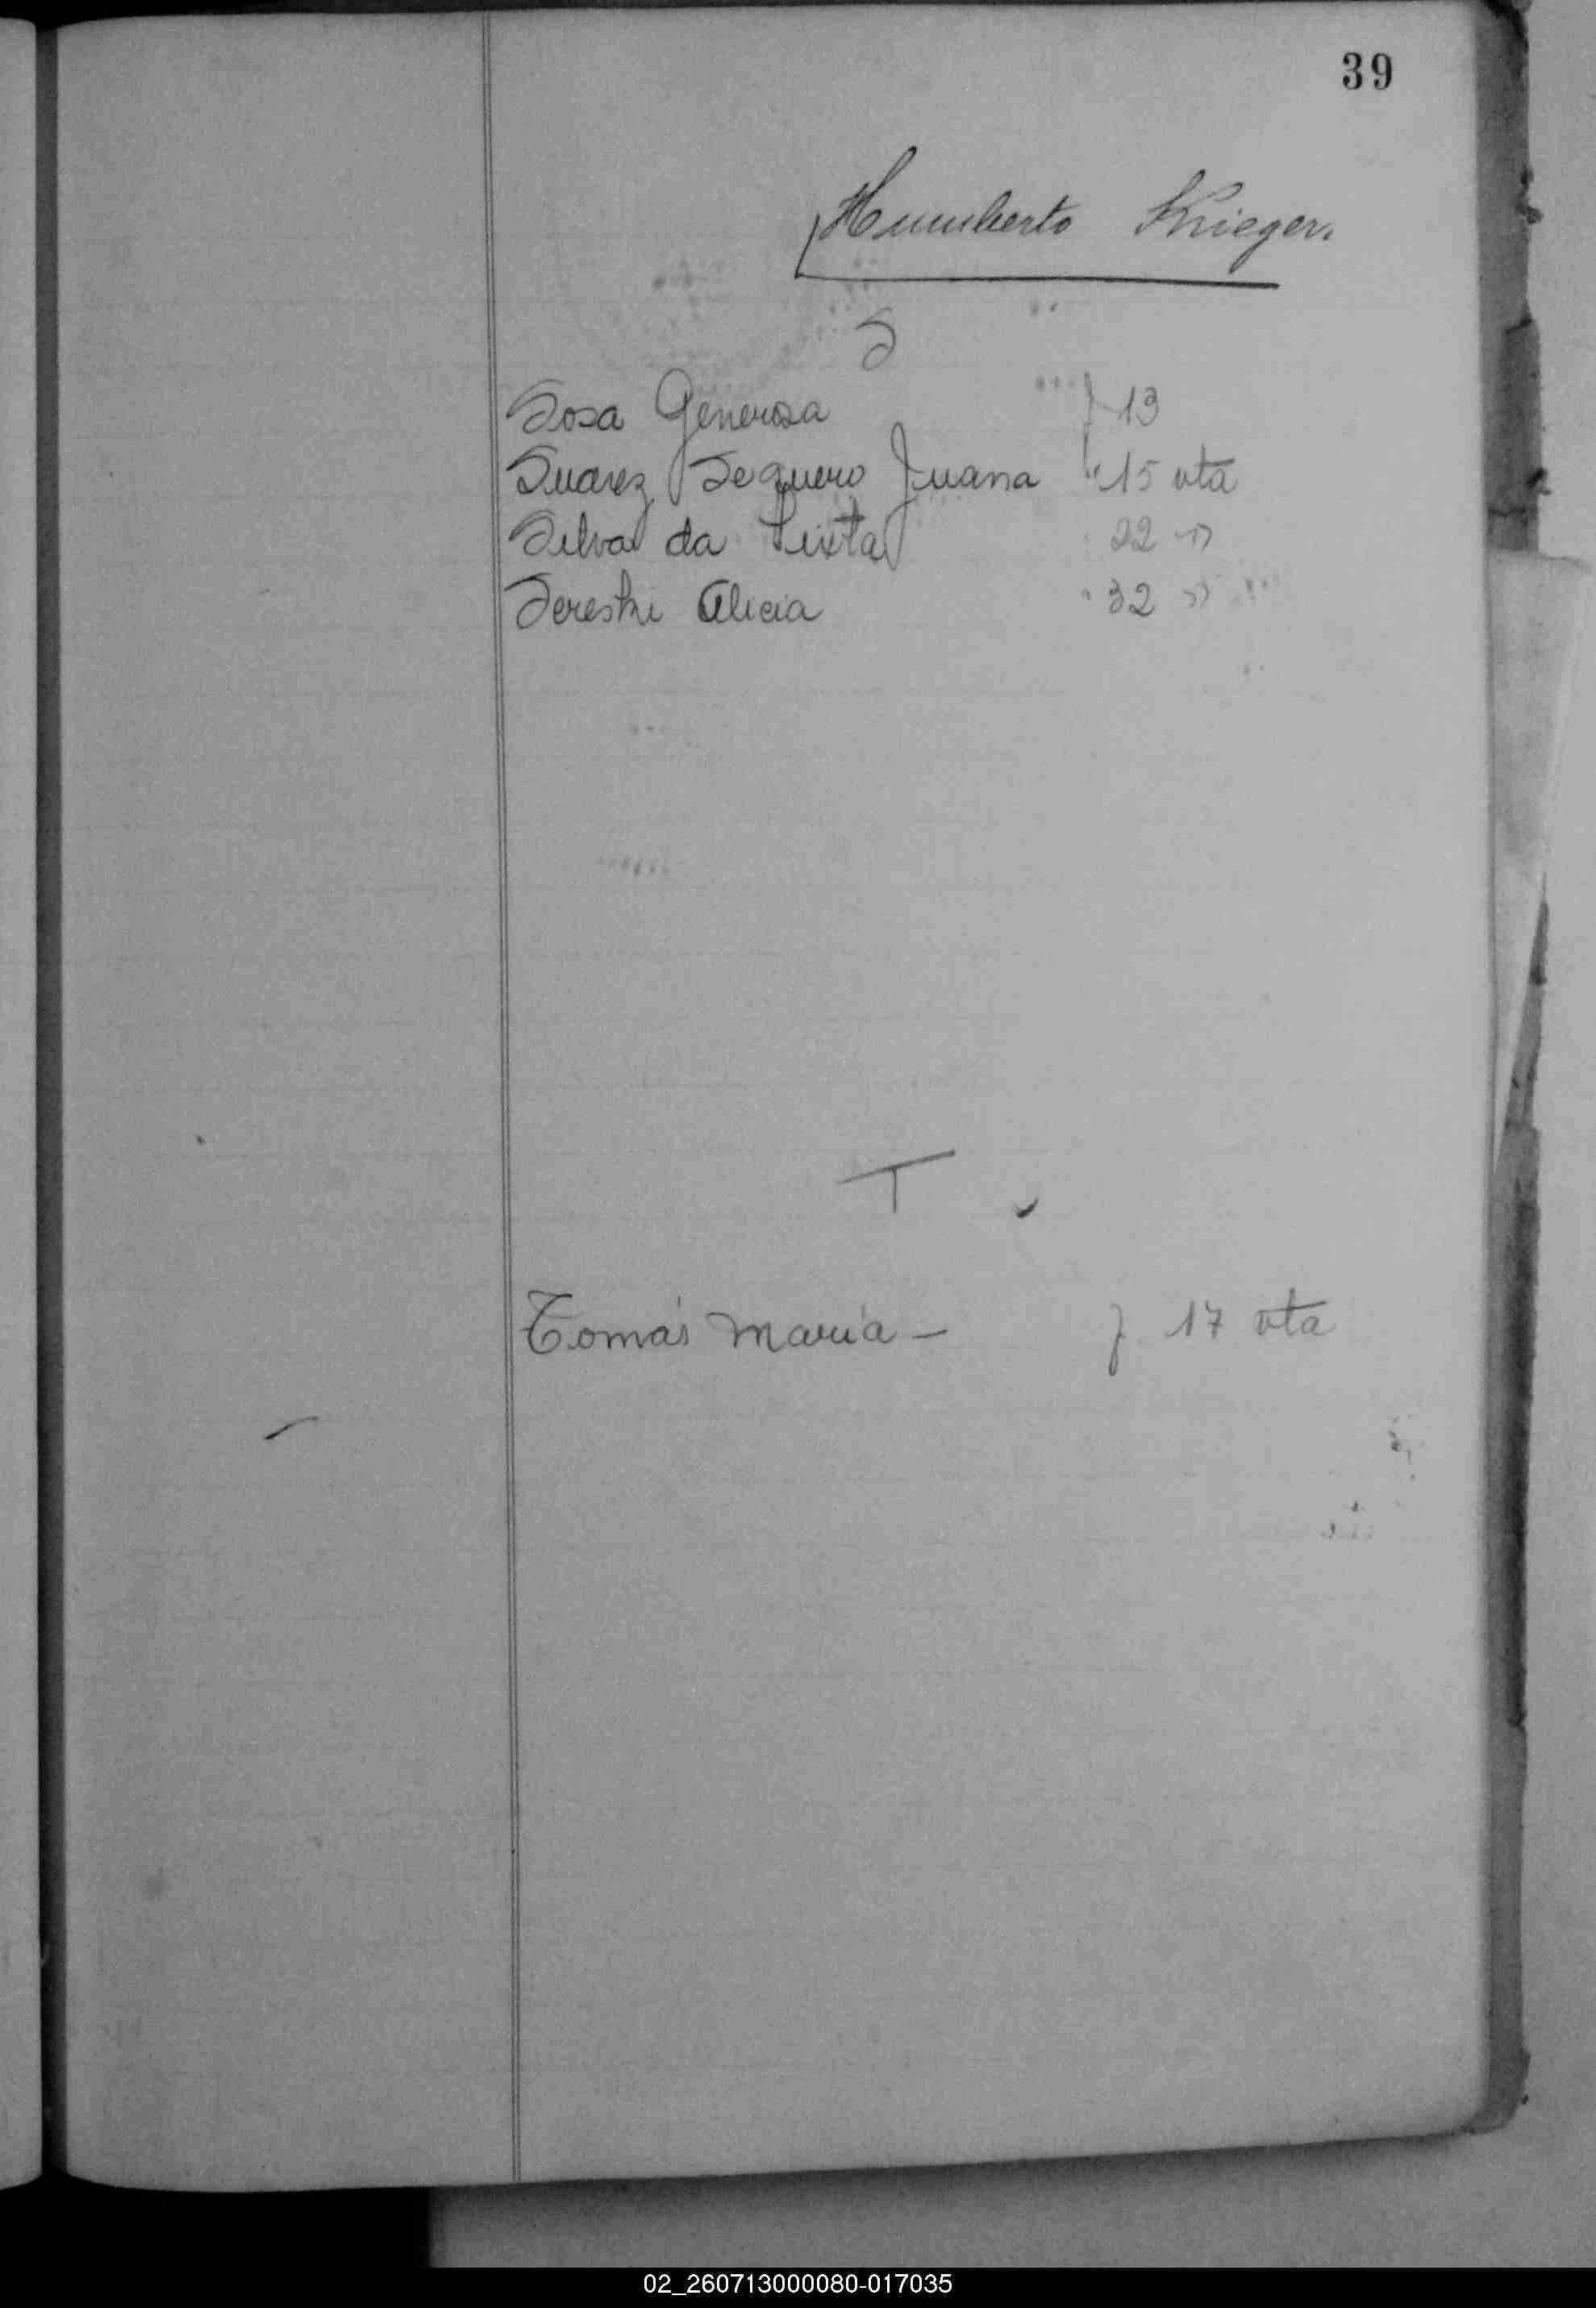 39
Humberto Krieger.
S
Sosa Generosa f 13
Suarez Sequero Juana " 15 vta
Silva da Sixta 22 "
Sereski Alicia " 32 "
T
Tomás María - f 17 vta
02_260713000080-017035